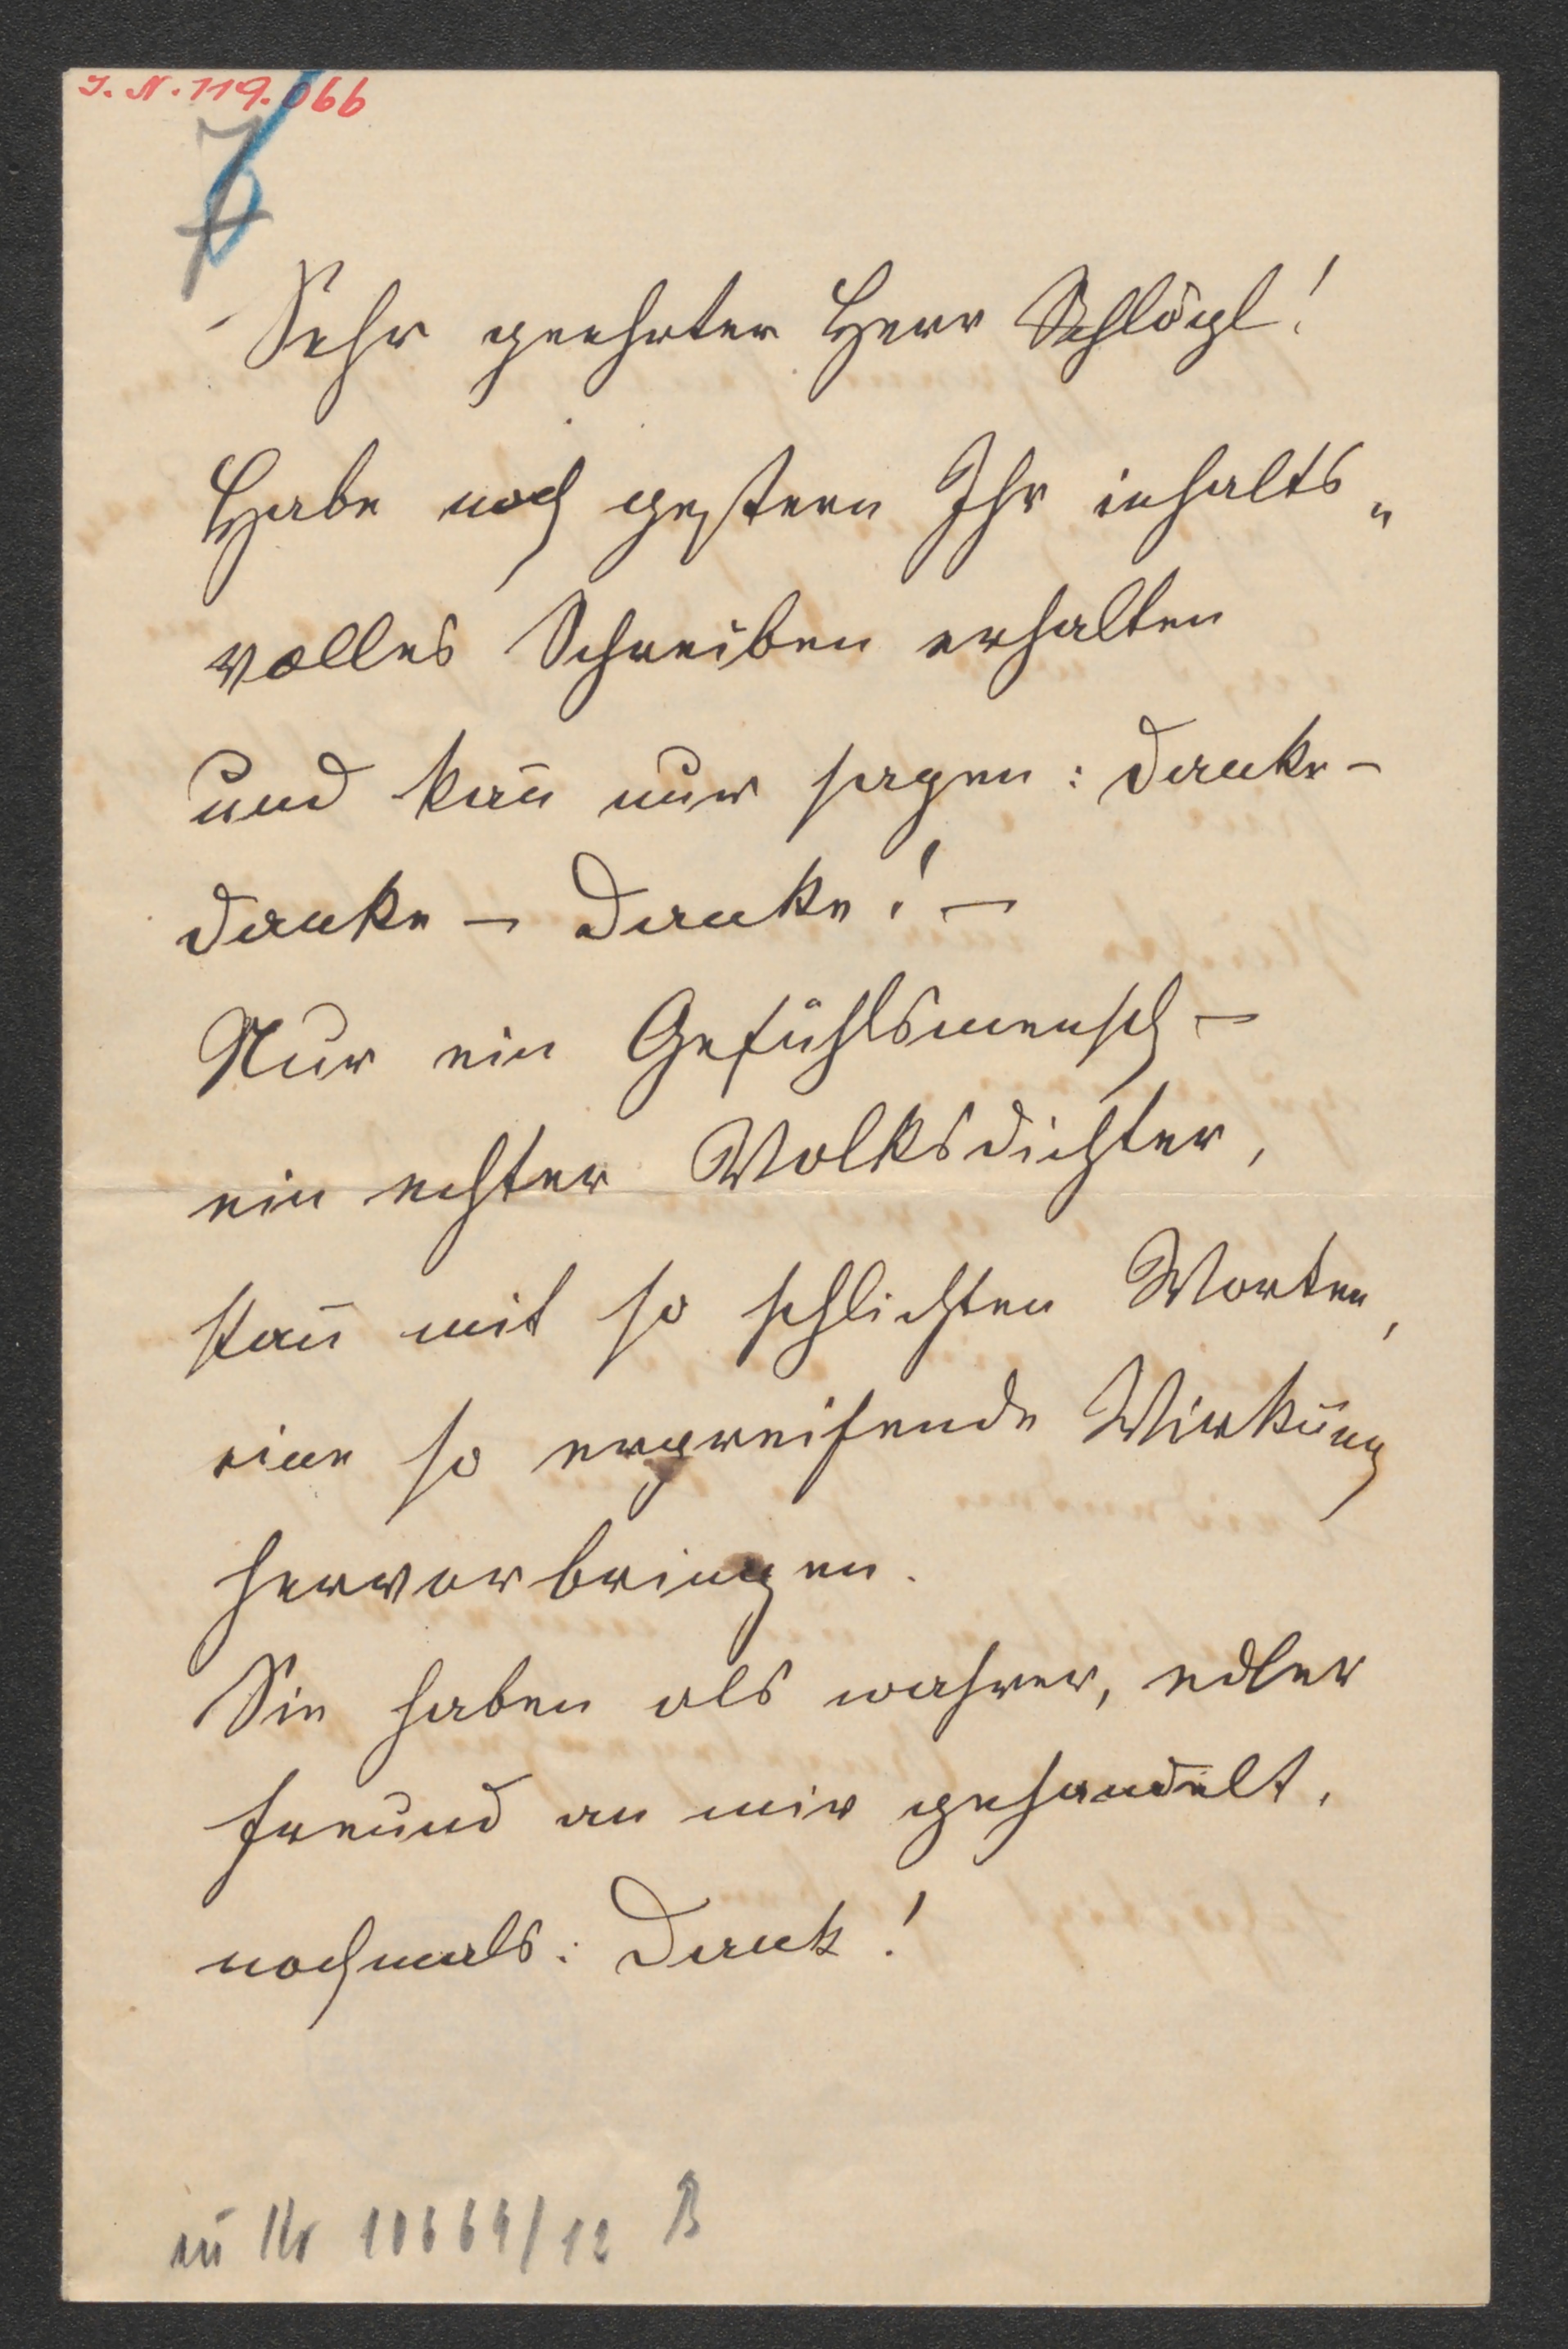 I. N. 119.066
7
Sehr geehrter Herr Schlögl!
Habe noch gestern Ihr inhalts„
volles Schreiben erhalten
und kan̄ nur sagen: danke –
danke – Danke! –
Nur ein Gefühlsmensch –
ein echter Volksdichter,
kan̄ mit so schlichten Worten,
eine so ergreifende Wirkung
hervorbringen.
Sie haben als wahrer, edler
Freund an mir gehandelt,
nochmals: Dank!
zu Nr 10664/12 B